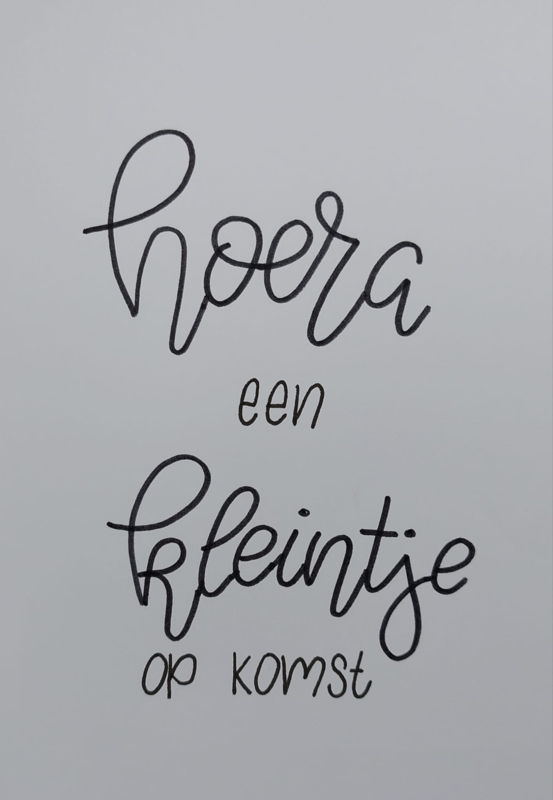 hoera
een
kleintje
op komst